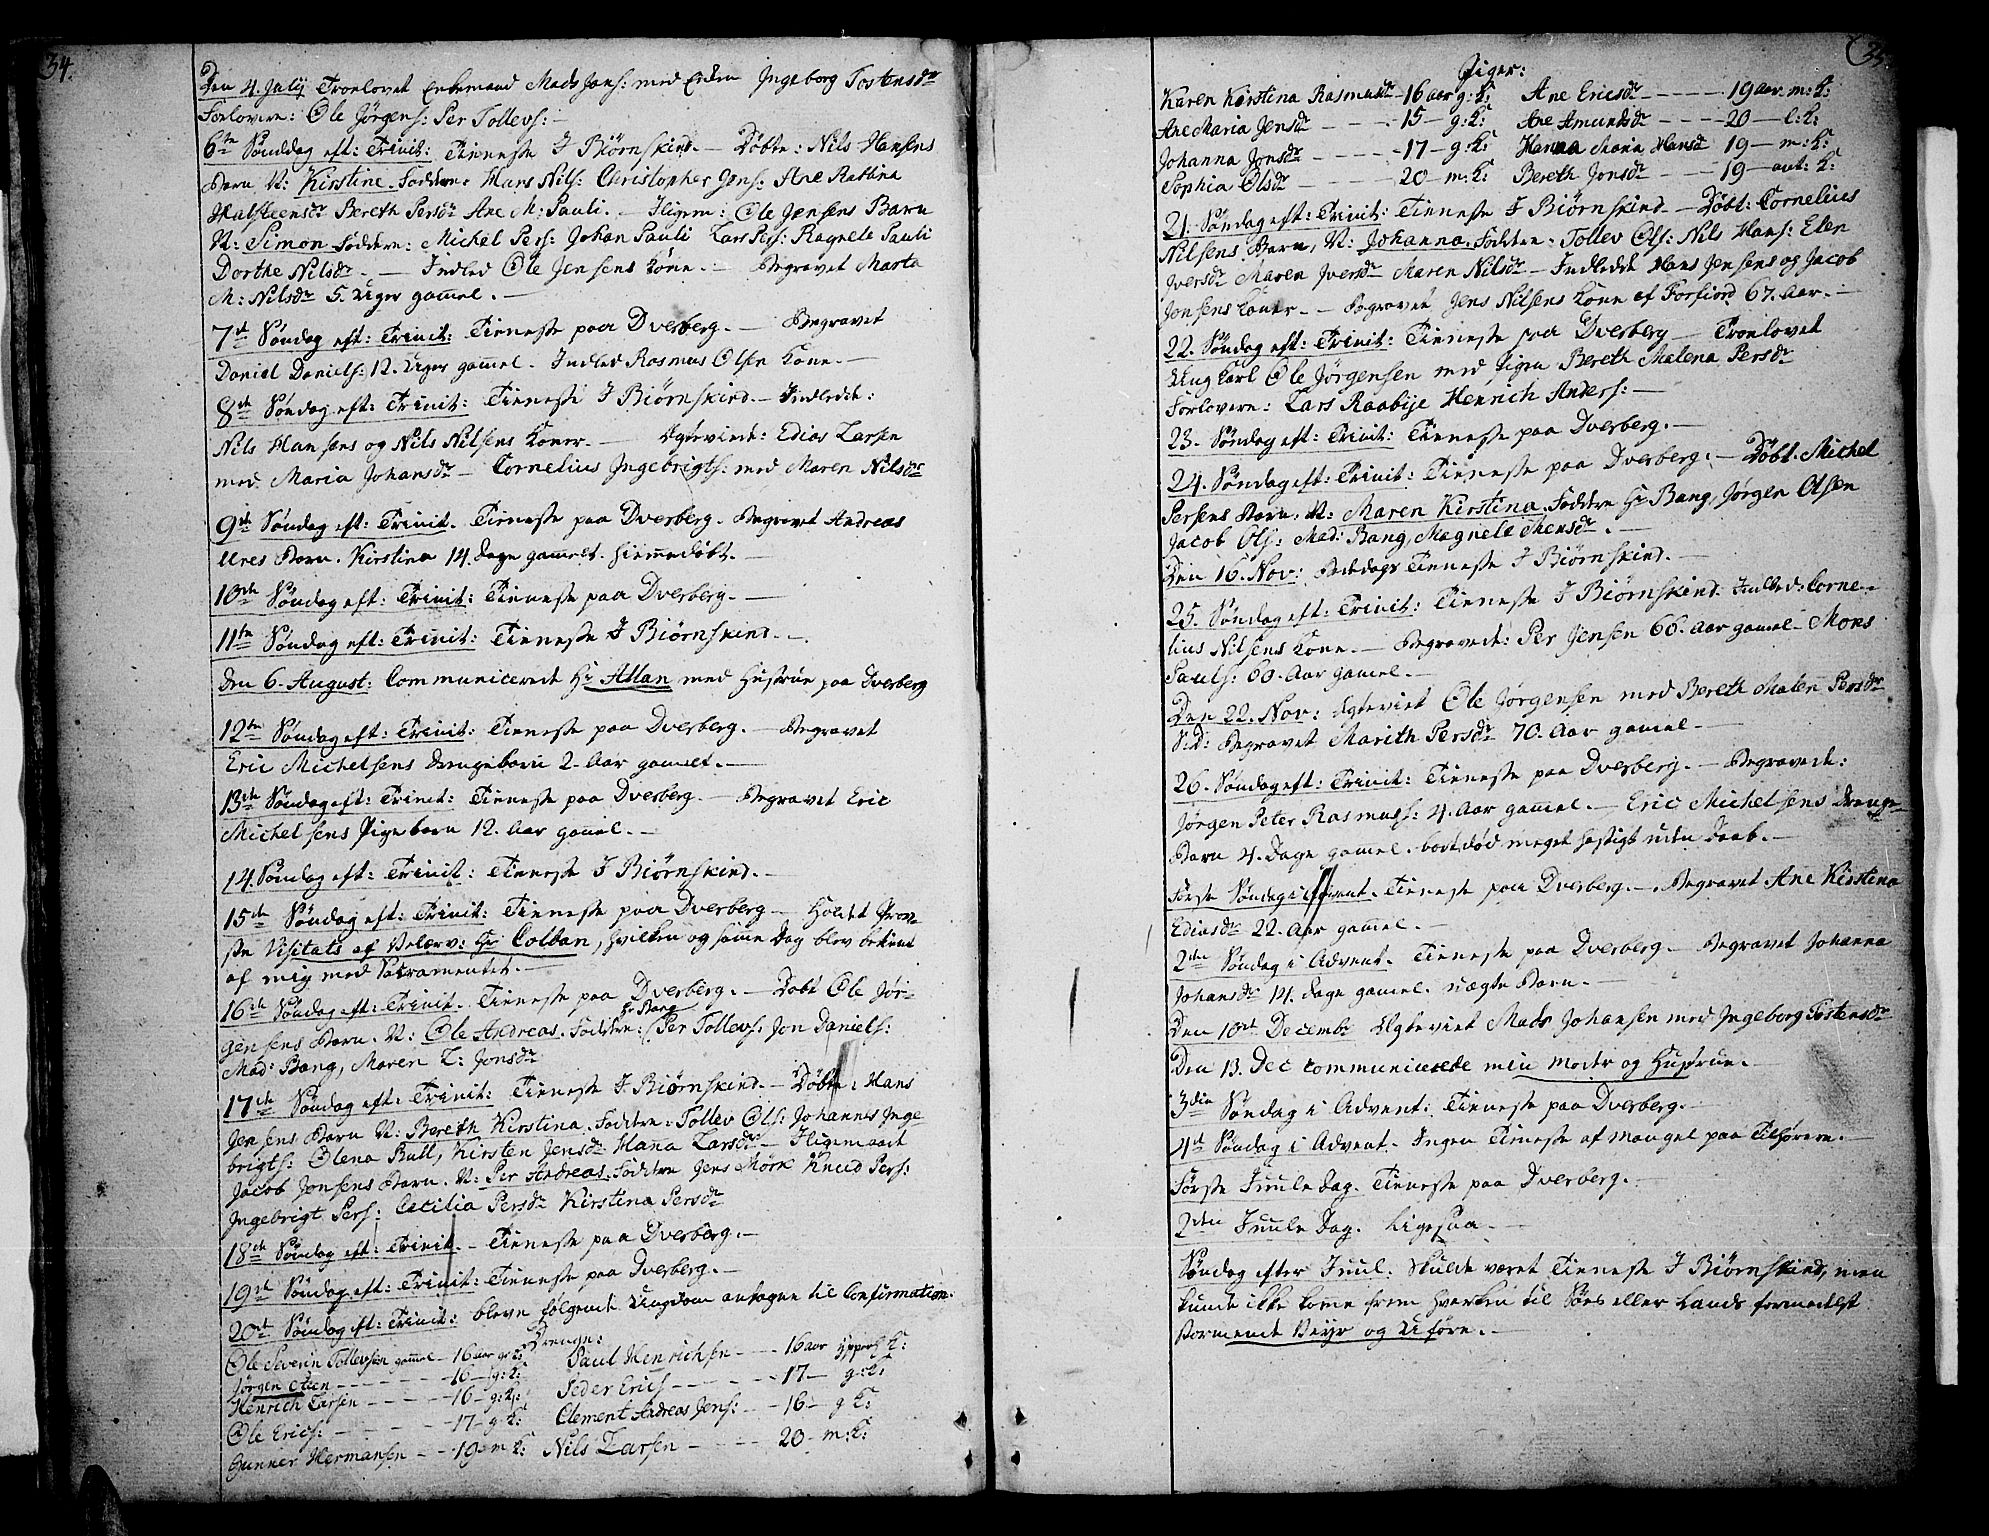 34.
Den 4. July Troelovet Enkemand Mads Jons: med Enken Ingeborg Tostensdr
Forlovere: Ole Jørgens: Per Tollevs: —
6te Sønddag eft: Trinit: Tieneste I Biørnskind. — Døbte: Nils Hansens
Barn N: Kirstine. Faddere: Hans Nils: Christopher Jens: Ane Rabbina
Halsteensdr Bereth Persdr Ane M: Pauli. — Iligem: Ole Jensens Barn
N: Simon Faddere: Michel Pers: Johan Pauli Lars Pers: Ragnele Pauli
Dorthe Nilsdr. — Indled Ole Jensens Kone. — Begravet Marta
M: Nilsdr 5. Uger gammel. —
7de Søndag eft: Trinit: Tieneste paa Dverberg. — Begravet
Daniel Daniels: 12. Uger gammel. Indled Rasmus Olsen Kone. —
8de Søndag eft: Trinit: Tieneste I Biørnskind. — Indledde:
Nils Hansens og Nils Nilsens Koner. — Egteviede: Edias Larsen
med Maria Johansdr — Cornelius Ingebrigts: med Maren Nilsdr
9de Søndag eft: Trinit. Tieneste paa Dverberg. Begravet Andreas
Ures Barn. Kirstina 14. Dage gammelt. hiemmedøbt. —
10de Søndag eft: Trinit: Tieneste paa Dverberg. —
11te Søndag eft: Trinit: Tieneste I Biørnskind. —
Den 6. August: Communicerede Hr Allan med Hustrue paa Dverberg
12te Søndag eft: Trinit: Tieneste paa Dverberg. — Begravet
Eric Michelsens Drengebarn 2. Aar gamelt. —
13de Søndag eft: Trinit: Tieneste paa Dverberg. — Begravet Eric
Michelsens Pigebarn 12. Aar gamel. —
14. Søndag eft: Trinit: Tieneste I Biørnskind. —
15de Søndag eft: Trinit: Tieneste paa Dverberg — Holdt Prov-
ste Visitats af Velærv: Hr Colban, hvilken og samme Dag blev betient
af mig med Sacramentet. —
16de Søndag eft: Trinit. Tieneste paa Dverberg. — Døbt Ole Jør-
gensens Barn. N: Ole Andreas. Faddere: Hr Bang Per Tollevs: Jon Daniels:
Mad: Bang, Maren L: Jonsdr
17de Søndag eft: Trinit: Tieneste I Biørnskind. — Døbte: Hans
Jensens Barn N: Bereth Kirstina. Faddere: Tollev Ols: Johannes Inge
brigts: Olena Bull, Kirsten Jensdr Hana Larsdr — Iligemaade
Jacob Jonsens Barn. N: Per Andreas. Faddere Jens Mørk Knud Pers:
Ingebrigt Pers: Cecilia Persdr Kirstina Persdr
18de Søndag eft: Trinit. — Tieneste paa Dverberg. —
19de Søndag eft: Trinit: Tieneste paa Dverberg. —
20de Søndag eft: Trinit: bleve følgende Ungdom antagne til Confirmation.
Drenge:
Ole Severin Tollevsen gammel — 16 aar g: K: Paul Henrichsen — 16 aar ypperl K:
Jørgen — 16 — g: K: Peder Erics — 17 — g: K:
Henrich Larsen — 16 — g: K: Clement Andreas Jens: — 16 — g K:
Ole Erics: — 17 — g: K: Nils Larsen — 20 — m: K:
Gunner Hermansen — 19 — m K:
35.
Piger:
Karen Kirstina Rasmusdr — 16 aar g: K: Ane Ericsdr — 19 aar m: K:
Ane Maria Jensdr — 15 — g: K: Ane Amundsdr — 20 — l: K:
Johanna Jonsdr — 17 — g: K: Hanna Maria Hansd 19 — m: K:
Sophia Olsdr — 20 — m: K: Bereth Jonsdr — 19 — ant: K:
21. Søndag eft: Trinit: Tieneste I Biørnskind — Døbt: Cornelius
Nilsens Barn, N: Johanna. Faddere: Tollev Ols: Nils Hans: Elen
Iversdr Maren Iversdr Maren Nilsdr — Indledde Hans Jensens og Jacob
Jonsens Koner. — Begravet Jens Nilsens Kone af Forfiord 67. Aar. —
22. Søndag eft: Trinit: Tieneste paa Dverberg — Troelovet
Ung Karl Ole Jørgensen med Pigen Bereth Malena Persdr
Forlovere: Lars Raabije Henrich Anders: —
23. Søndag eft: Trinit: Tieneste paa Dverberg. —
24. Søndag eft: Trinit: Tieneste paa Dverberg. — Døbt. Michel
Persens Barn. N: Maren Kirstina. Faddere Hr Bang, Jørgen Olsen
Jacob Ols: Mad: Bang, Magnele Mensdr. —
Den 16. Nov: Bededags Tieneste I Biørnskind. —
25. Søndag eft: Trinit: Tieneste I Biørnskind. Indled: Corne-
lius Nilsens Kone. — Begravede: Per Jensen 66. Aar gamel — Mons
Pauls: 60. Aar gamel. —
Den 22. Nov: Egteviet Ole Jørgensen med Bereth Malen Persdr
S:D: Begravet Marith Persdr 70. Aar gamel —
26. Søndag eft: Trinit: Tieneste paa Dverberg. — Begravede:
Jørgen Peter Rasmuss: 4. Aar gamel. — Eric Michelsens Drenge-
Barn 4. Dage gamel. bortdød meget hastigt uden Daab. —
Første Søndag i Advent. Tieneste paa Dverberg. — Begravet Ane Kirstina
Ediasdr 22. Aar gammel. —
2den Søndag i Advent. Tieneste paa Dverberg — Begravet Johanna
Johansdr 14. Dage gamel. uægte Barn. —
Den 10de Decembr Egteviet Mads Johansen med Ingeborg Tostensdr
Den 13. Dec communicerede min Moder og Hustrue. —
3die Søndag i Advent: Tieneste paa Dverberg. —
4de Søndag i Advent. Ingen Tieneste af Mangel paa Tilhørere. —
Første Juule Dag. Tieneste paa Dverberg. —
2den Juule Dag. Ligesaa —
Søndag efter Juul. Skulde været Tieneste I Biørnskind, men
kunde ikke komme frem hverken til Søes eller Lands formedelst
stormende Veyr og Uføre. —